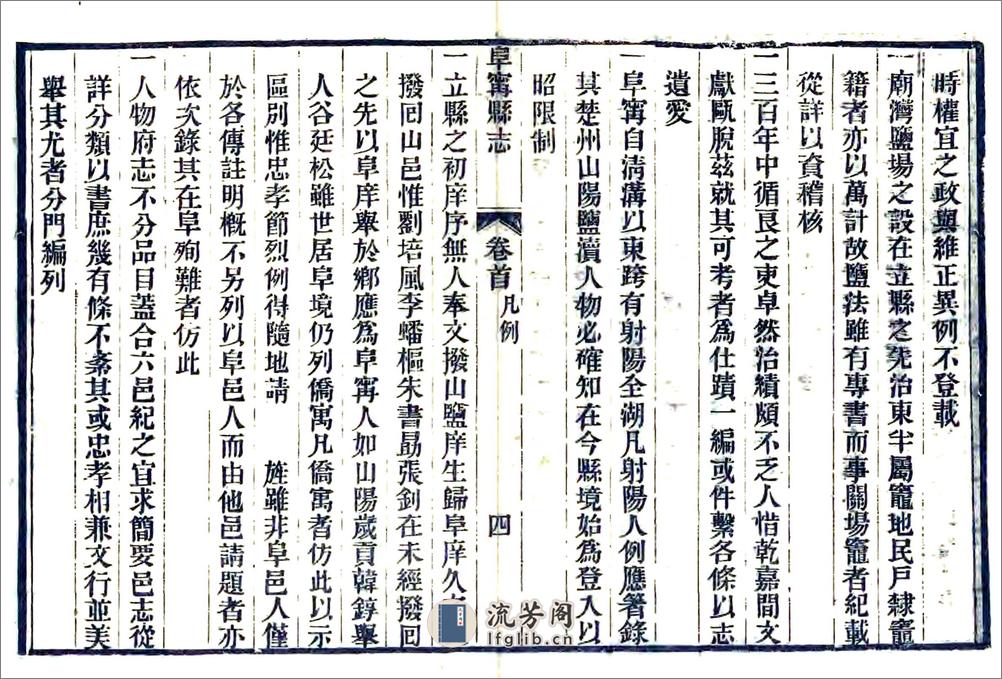 時權宜之政與維正異例不登載
一廟灣鹽場之設在立縣之先治東半屬竈地民戶隸竈
籍者亦以萬計故鹽法雖有專書而事關場竈者紀載
從詳以資稽核
一三百年中循良之吏卓然治績頗不乏人惜乾嘉間文
獻甌脫茲就其可考者為仕蹟一編或件繫各條以志
遺愛
一阜寗自清溝以東跨有射陽全湖凡射陽人例應著錄
其楚州山陽鹽瀆人物必確知在今縣境始為登入以
昭限制
阜寗縣志
卷首 凡例
四
一立縣之初庠序無人奉文撥山鹽庠生歸阜庠久
撥囘山邑惟劉培風李蟠樞朱書勗張釗在未經撥囘
之先以阜庠舉於鄉應為阜寗人如山陽歲貢韓錞舉
人谷廷松雖世居阜境仍列僑寓凡僑寓者仿此以示
區別惟忠孝節烈例得隨地請 旌雖非阜邑人僅
於各傳註明概不另列以阜邑人而由他邑請題者亦
依次錄其在阜殉難者仿此
一人物府志不分品目蓋合六邑紀之宜求簡要邑志從
詳分類以書庶幾有條不紊其或忠孝相兼文行並美
舉其尤者分門編列
流芳阁
lfglib.cn